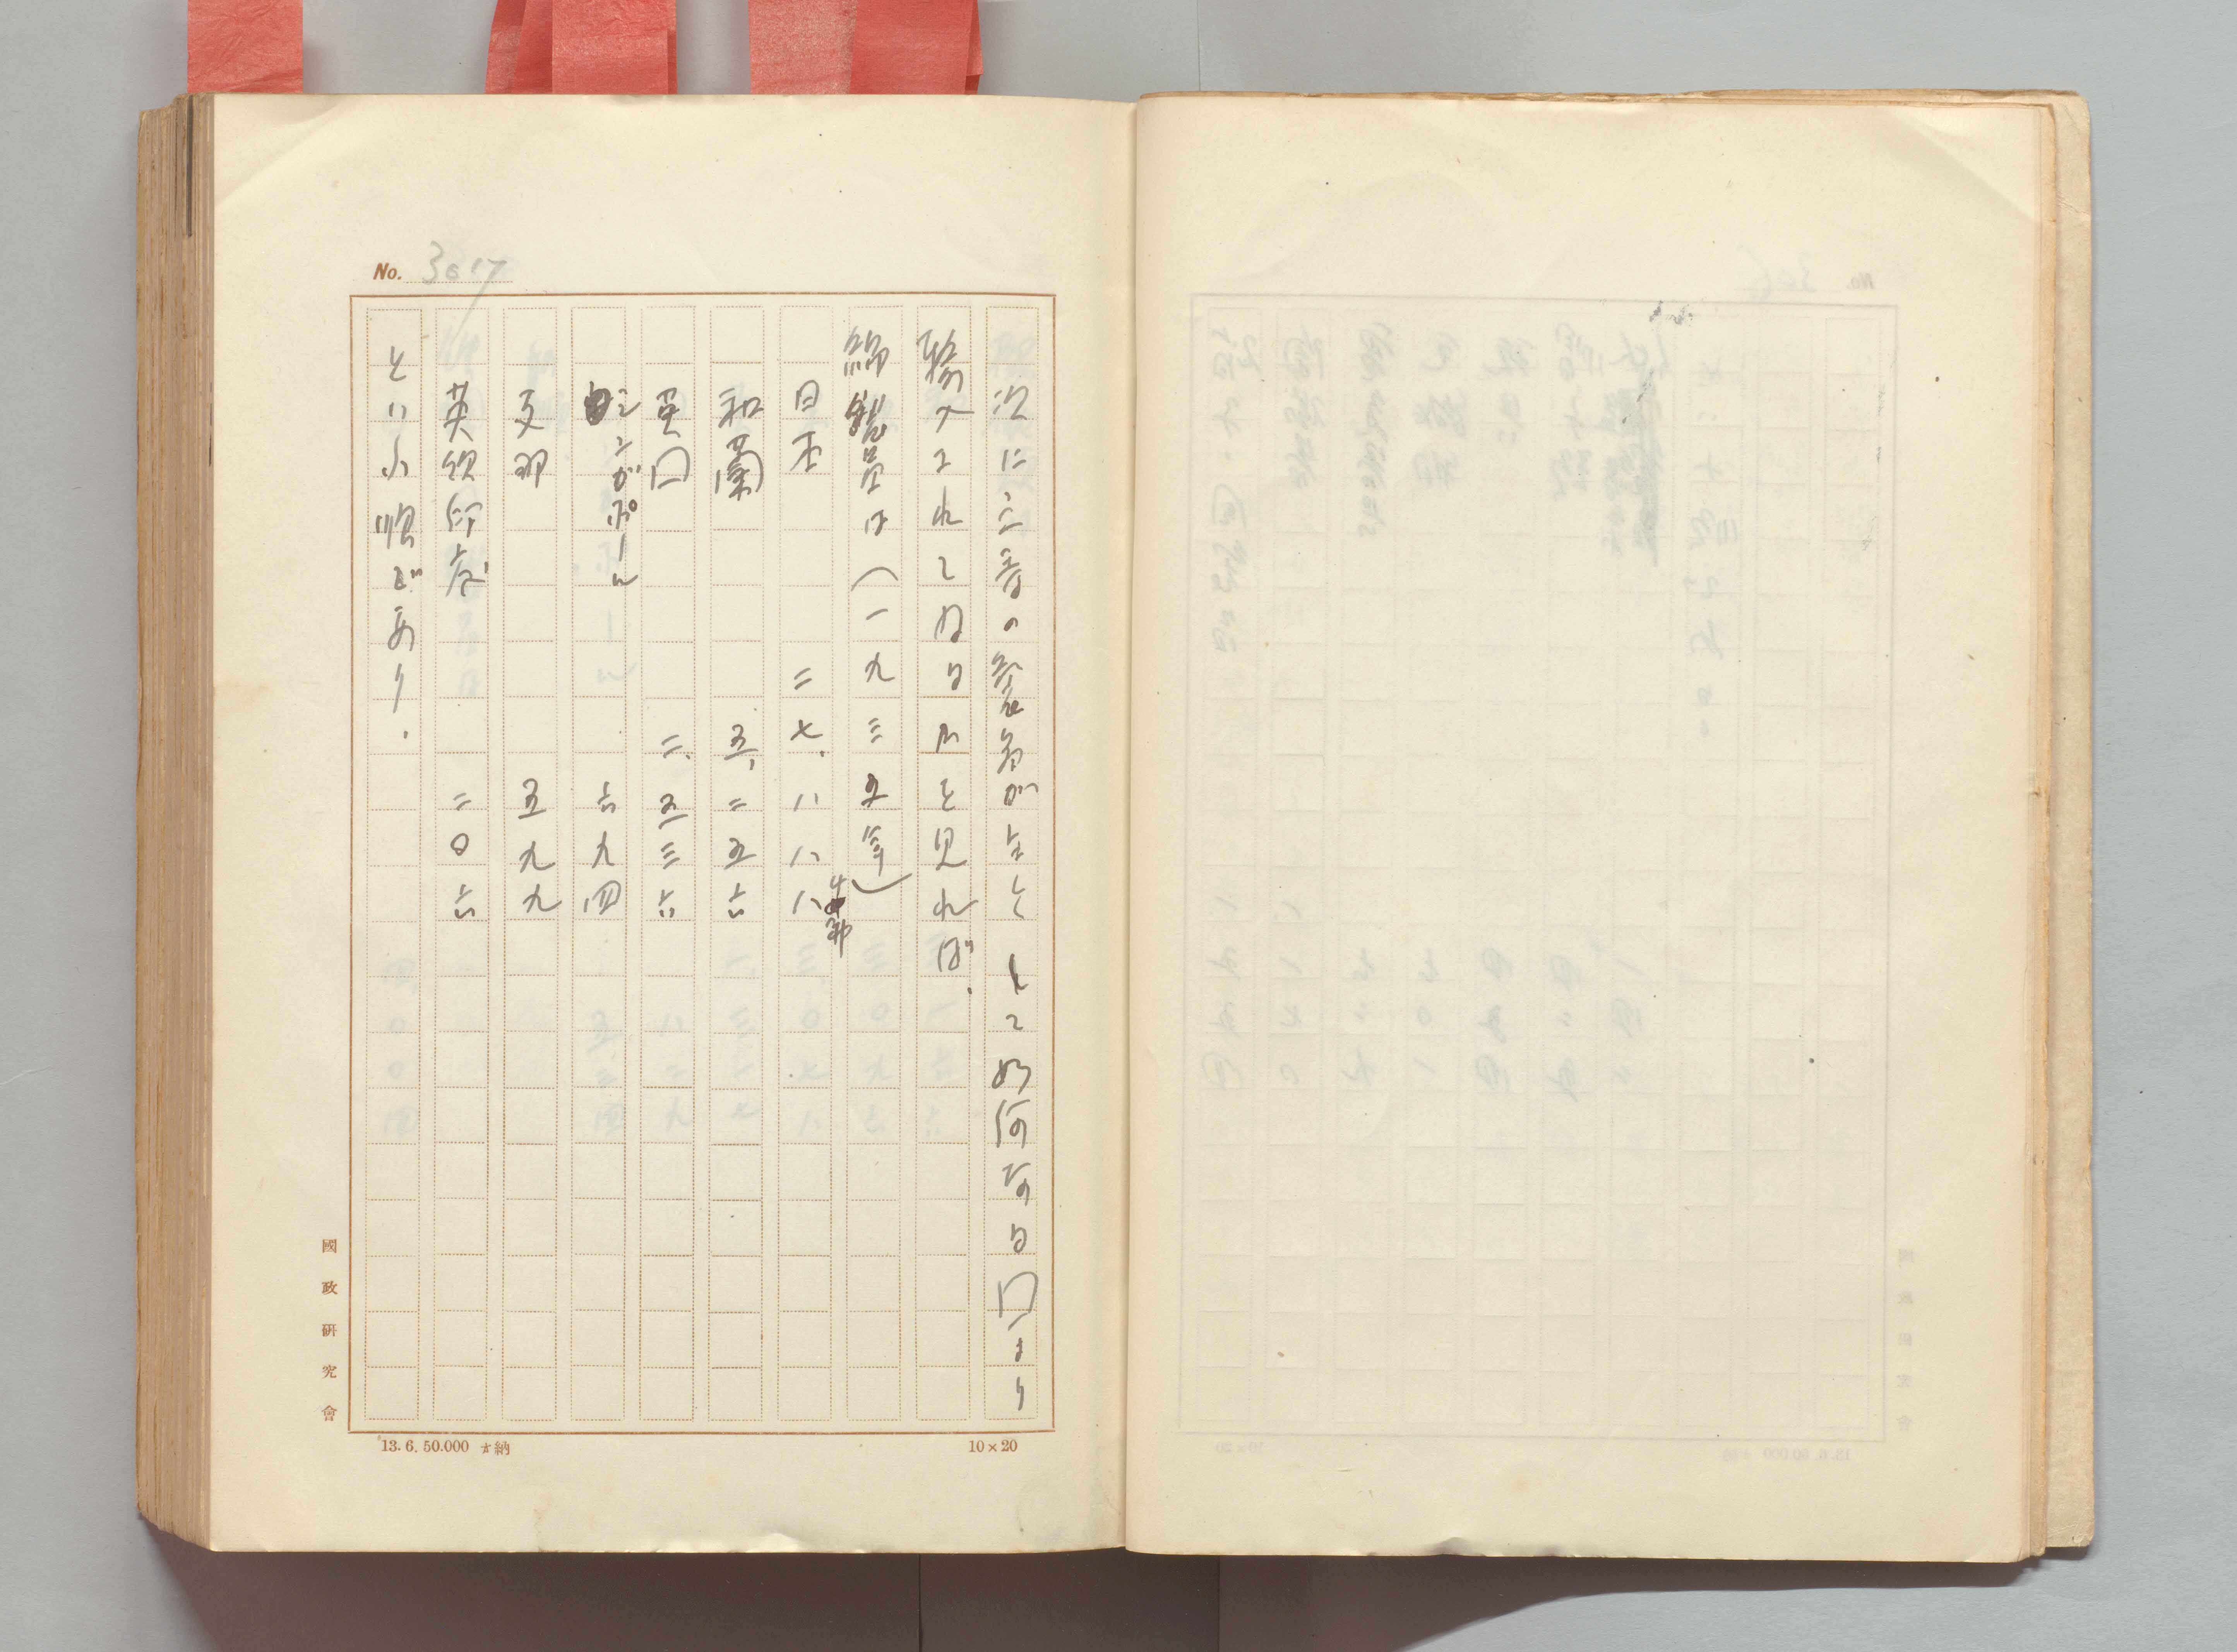 No. 3017
次に之等の需要者が主として如何なる国より
輸入されてゐるかを見れば、
綿製品は(一九三五年)
千部
日本 二七、八八八
和蘭 五、二五六
英国 二、五三六
シンガポール 六九四
支那 五九九
英領印度 二〇六
といふ順であり、
國政研究會
13.6.50.000 納
10×20